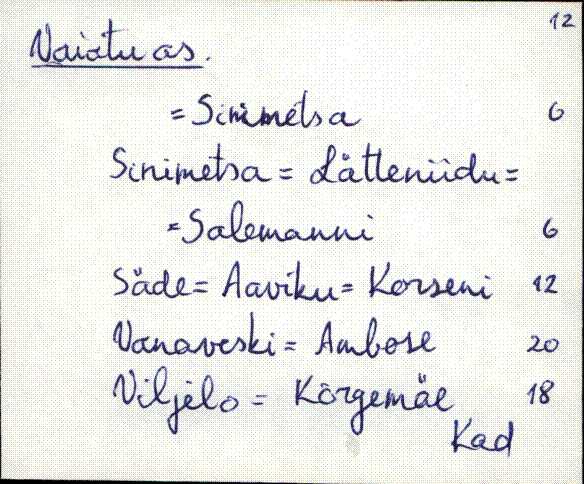 12
Vaiatu as.
= Sinimetsa 6
Sinimetsa = Lätteniidu =
= Salemanni 6
Säde = Aaviku = Korseni 12
Vanaveski = Ambose 20
Viljelo = Kõrgemäe 18
Kad